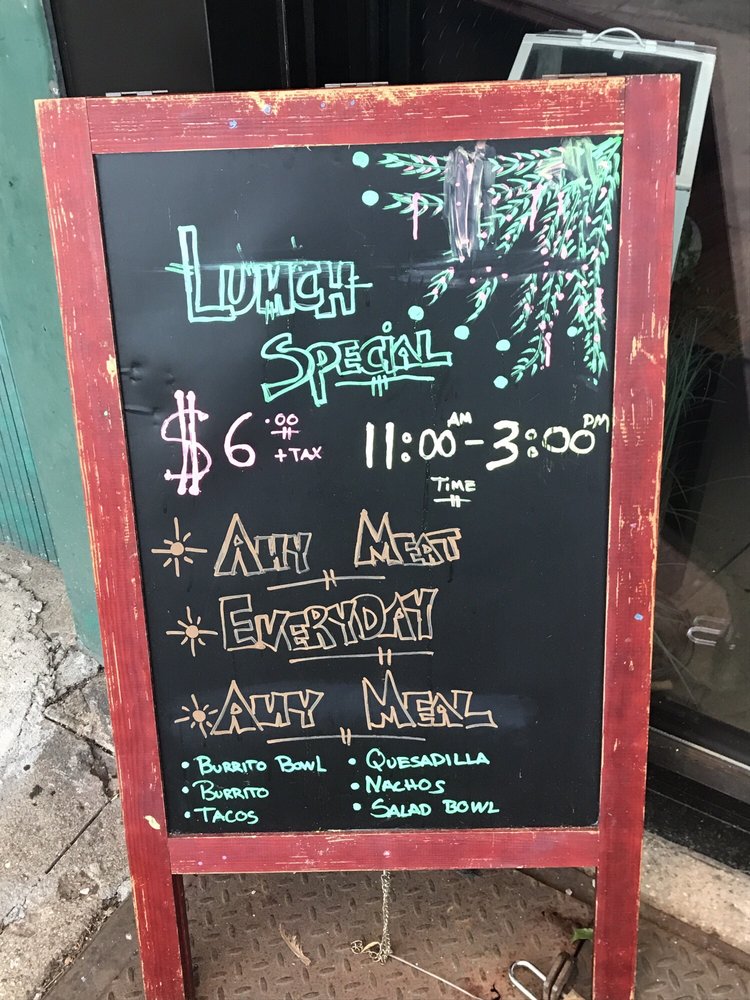 LUNCH
SPECIAL
$6.00 + TAX
11:00 AM - 3:00 PM
TIME
ANY MEAT
EVERYDAY
ANY MEAL
• BURRITO BOWL
• BURRITO
• TACOS
• QUESADILLA
• NACHOS
• SALAD BOWL